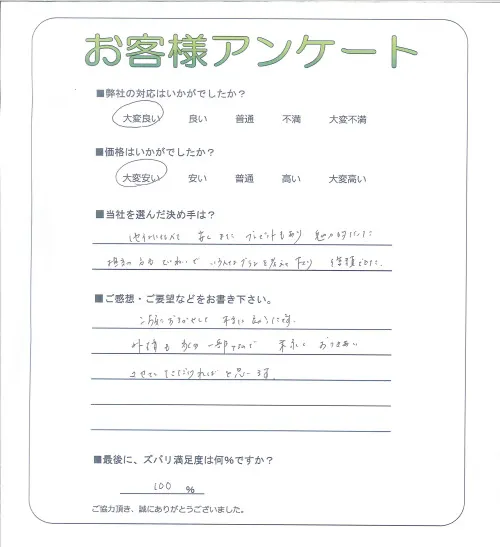 お客様アンケート
■弊社の対応はいかがでしたか？
大変良い 良い 普通 不満 大変不満
■価格はいかがでしたか？
大変安い 安い 普通 高い 大変高い
■当社を選んだ決め手は？
他社に比べて 安く また プレゼントもあり 魅力的だった
担当の方も ていねいで いろんなプランを考えて下さり 信頼できた.
■ご感想・ご要望などをお書き下さい。
お任せして 本当に良かったです.
外壁も 家の一部なので 末永く おつきあい
させていただければ と思います.
■最後に、ズバリ満足度は何%ですか？
100 %
ご協力頂き、誠にありがとうございました。